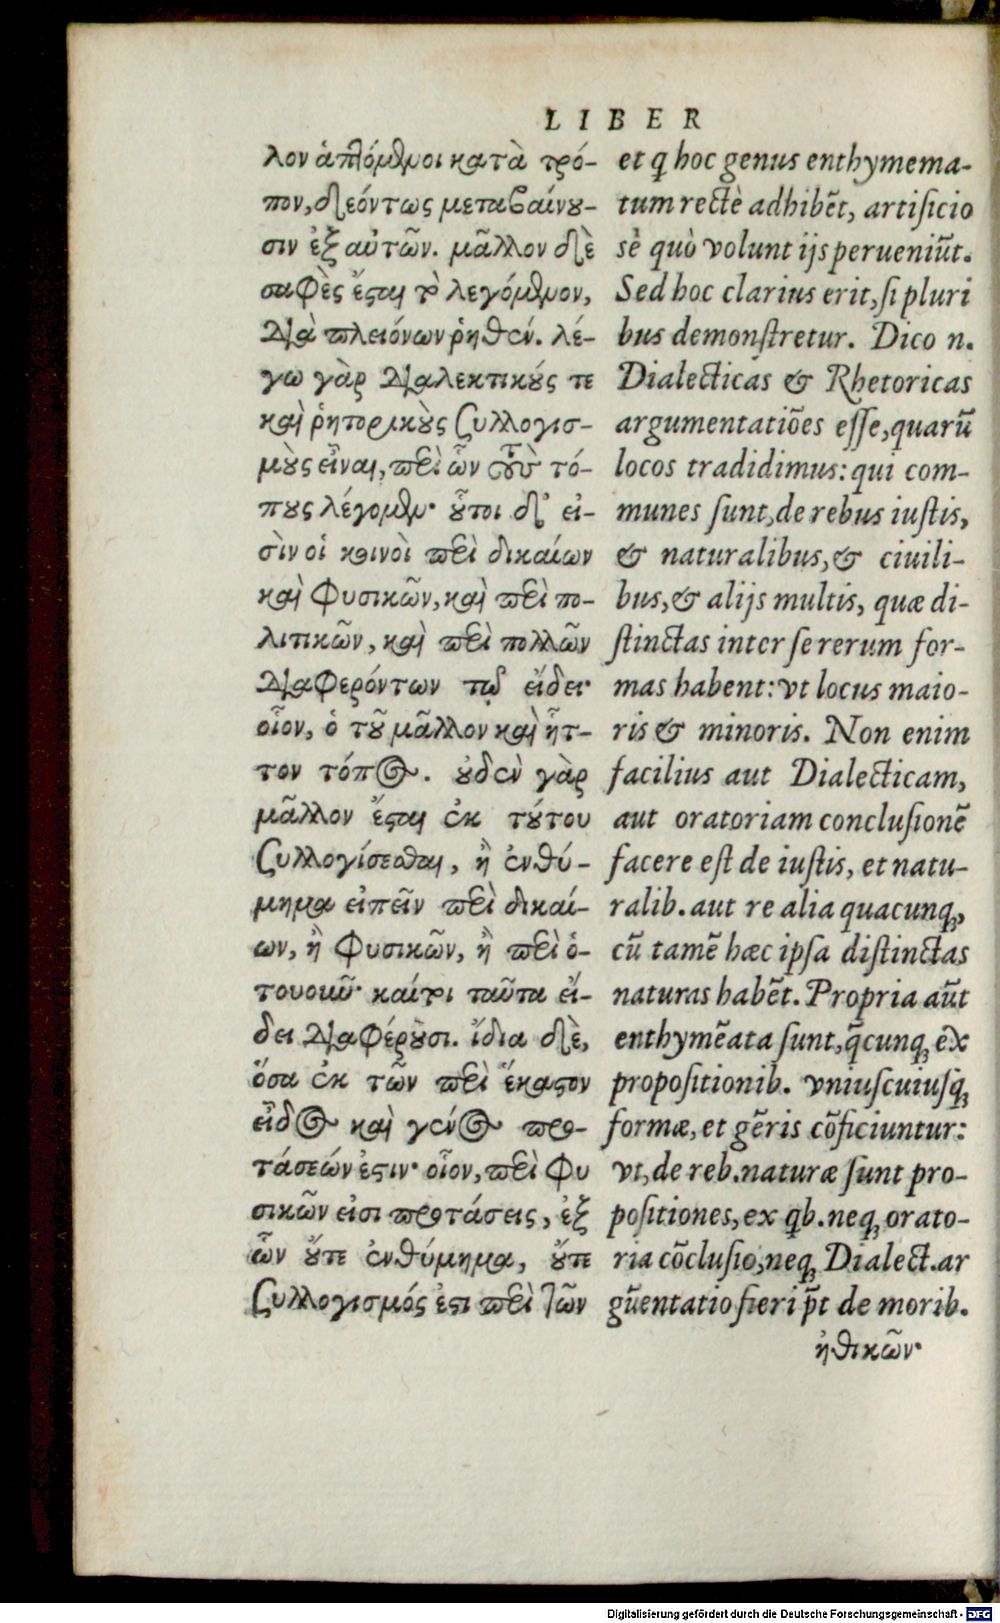 LIBER
λον ἁπτόμενοι κατὰ τρό-
πον, δεόντως μεταβαίνου-
σιν ἐξ αὐτῶν. μᾶλλον δὲ
σαφὲς ἔσται τὸ λεγόμενον,
διὰ πλειόνων ῥηθέν. λέ-
γω γὰρ διαλεκτικούς τε
καὶ ῥητορικοὺς συλλογισ-
μοὺς εἶναι, περὶ ὧν τοὺς τό-
πους λέγομεν· οὗτοι δ᾽ εἰ-
σὶν οἱ κοινοὶ περὶ δικαίων
καὶ φυσικῶν, καὶ περὶ πο-
λιτικῶν, καὶ περὶ πολλῶν
διαφερόντων τῷ εἴδει·
οἷον, ὁ τοῦ μᾶλλον καὶ ἧτ-
τον τόπος. οὐδὲν γὰρ
μᾶλλον ἔσται ἐκ τούτου
συλλογίσεσθαι, ἢ ἐνθύ-
μημα εἰπεῖν περὶ δικαί-
ων, ἢ φυσικῶν, ἢ περὶ ὁ-
τουοῦν· καίτοι ταῦτα εἴ-
δει διαφέρουσι. ἴδια δὲ,
ὅσα ἐκ τῶν περὶ ἕκαστον
εἶδος καὶ γένος προ-
τάσεών ἐστιν· οἷον, περὶ φυ
σικῶν εἰσι προτάσεις, ἐξ
ὧν οὔτε ἐνθύμημα, οὔτε
συλλογισμός ἐστι περὶ τῶν
et q hoc genus enthymema-
tum rectè adhibēt, artificio
sè quò volunt ijs perueniūt.
Sed hoc clarius erit, si pluri
bus demonstretur. Dico n.
Dialecticas & Rhetoricas
argumentatiōes esse, quarū
locos tradidimus: qui com-
munes sunt, de rebus iustis,
& naturalibus, & ciuili-
bus, & alijs multis, quæ di-
stinctas inter se rerum for-
mas habent: vt locus maio-
ris & minoris. Non enim
facilius aut Dialecticam,
aut oratoriam conclusionē
facere est de iustis, et natu-
ralib. aut re alia quacunq;,
cū tamē hæc ipsa distinctas
naturas habēt. Propria aūt
enthymēata sunt, q̄cunq; ex
propositionib. vniuscuiusq;
formæ, et gēris cōficiuntur:
vt, de reb. naturæ sunt pro-
positiones, ex qb. neq; orato-
ria cōclusio, neq; Dialect. ar
gūentatio fieri p̄t de morib.
ἠθικῶν·
Digitalisierung gefördert durch die Deutsche Forschungsgemeinschaft - DFG